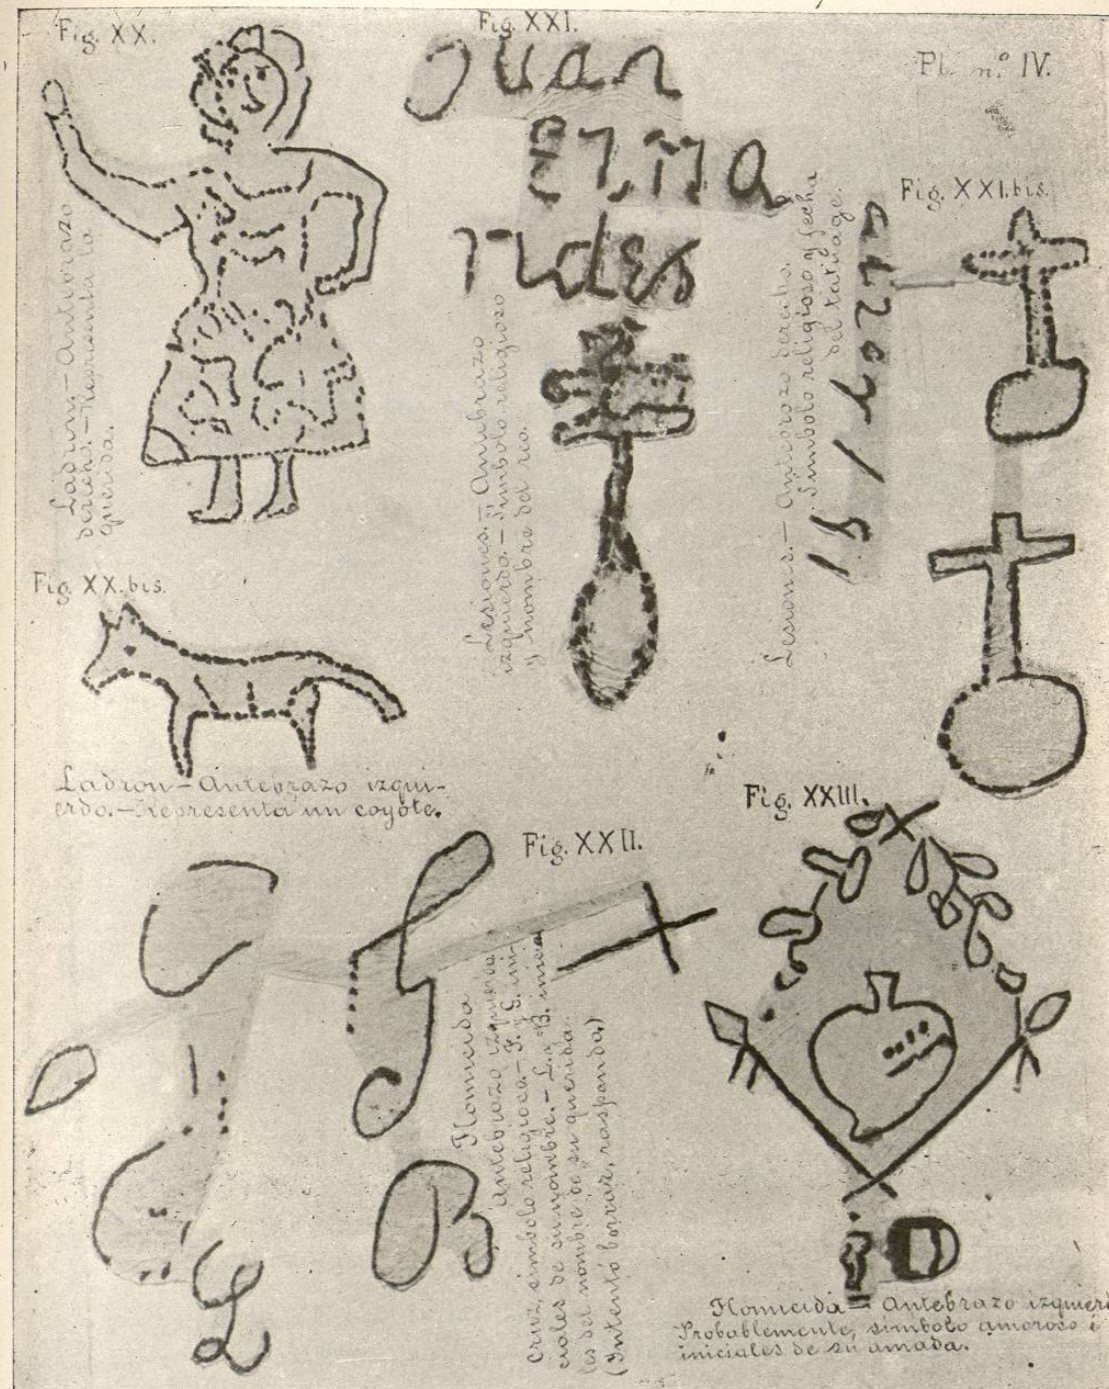 Fig. XX.
Ladron.—Antebrazo
derecho.—Representa la
querida.
Fig. XXI.
Juan
rides
Lesiones.—Antebrazo
izquierdo.—Símbolo religioso
y nombre del reo.
Pl. n.º IV.
Fig. XXI.bis.
Lesiones.—Antebrazo derecho.
Símbolo religioso y fecha
del tatuage.
Fig. XX.bis.
Ladron—Antebrazo izqui-
erdo.—Representa un coyote.
Fig. XXII.
L
B
Homicida
Antebrazo izquierdo
cruz, símbolo religioso.—F. y G. ini-
ciales de su nombre.—L. y B. inicia
les del nombre de su querida.
(Intentó borrar, raspando.)
Fig. XXIII.
Homicida—Antebrazo izquierd
Probablemente, símbolo amoroso é
iniciales de su amada.